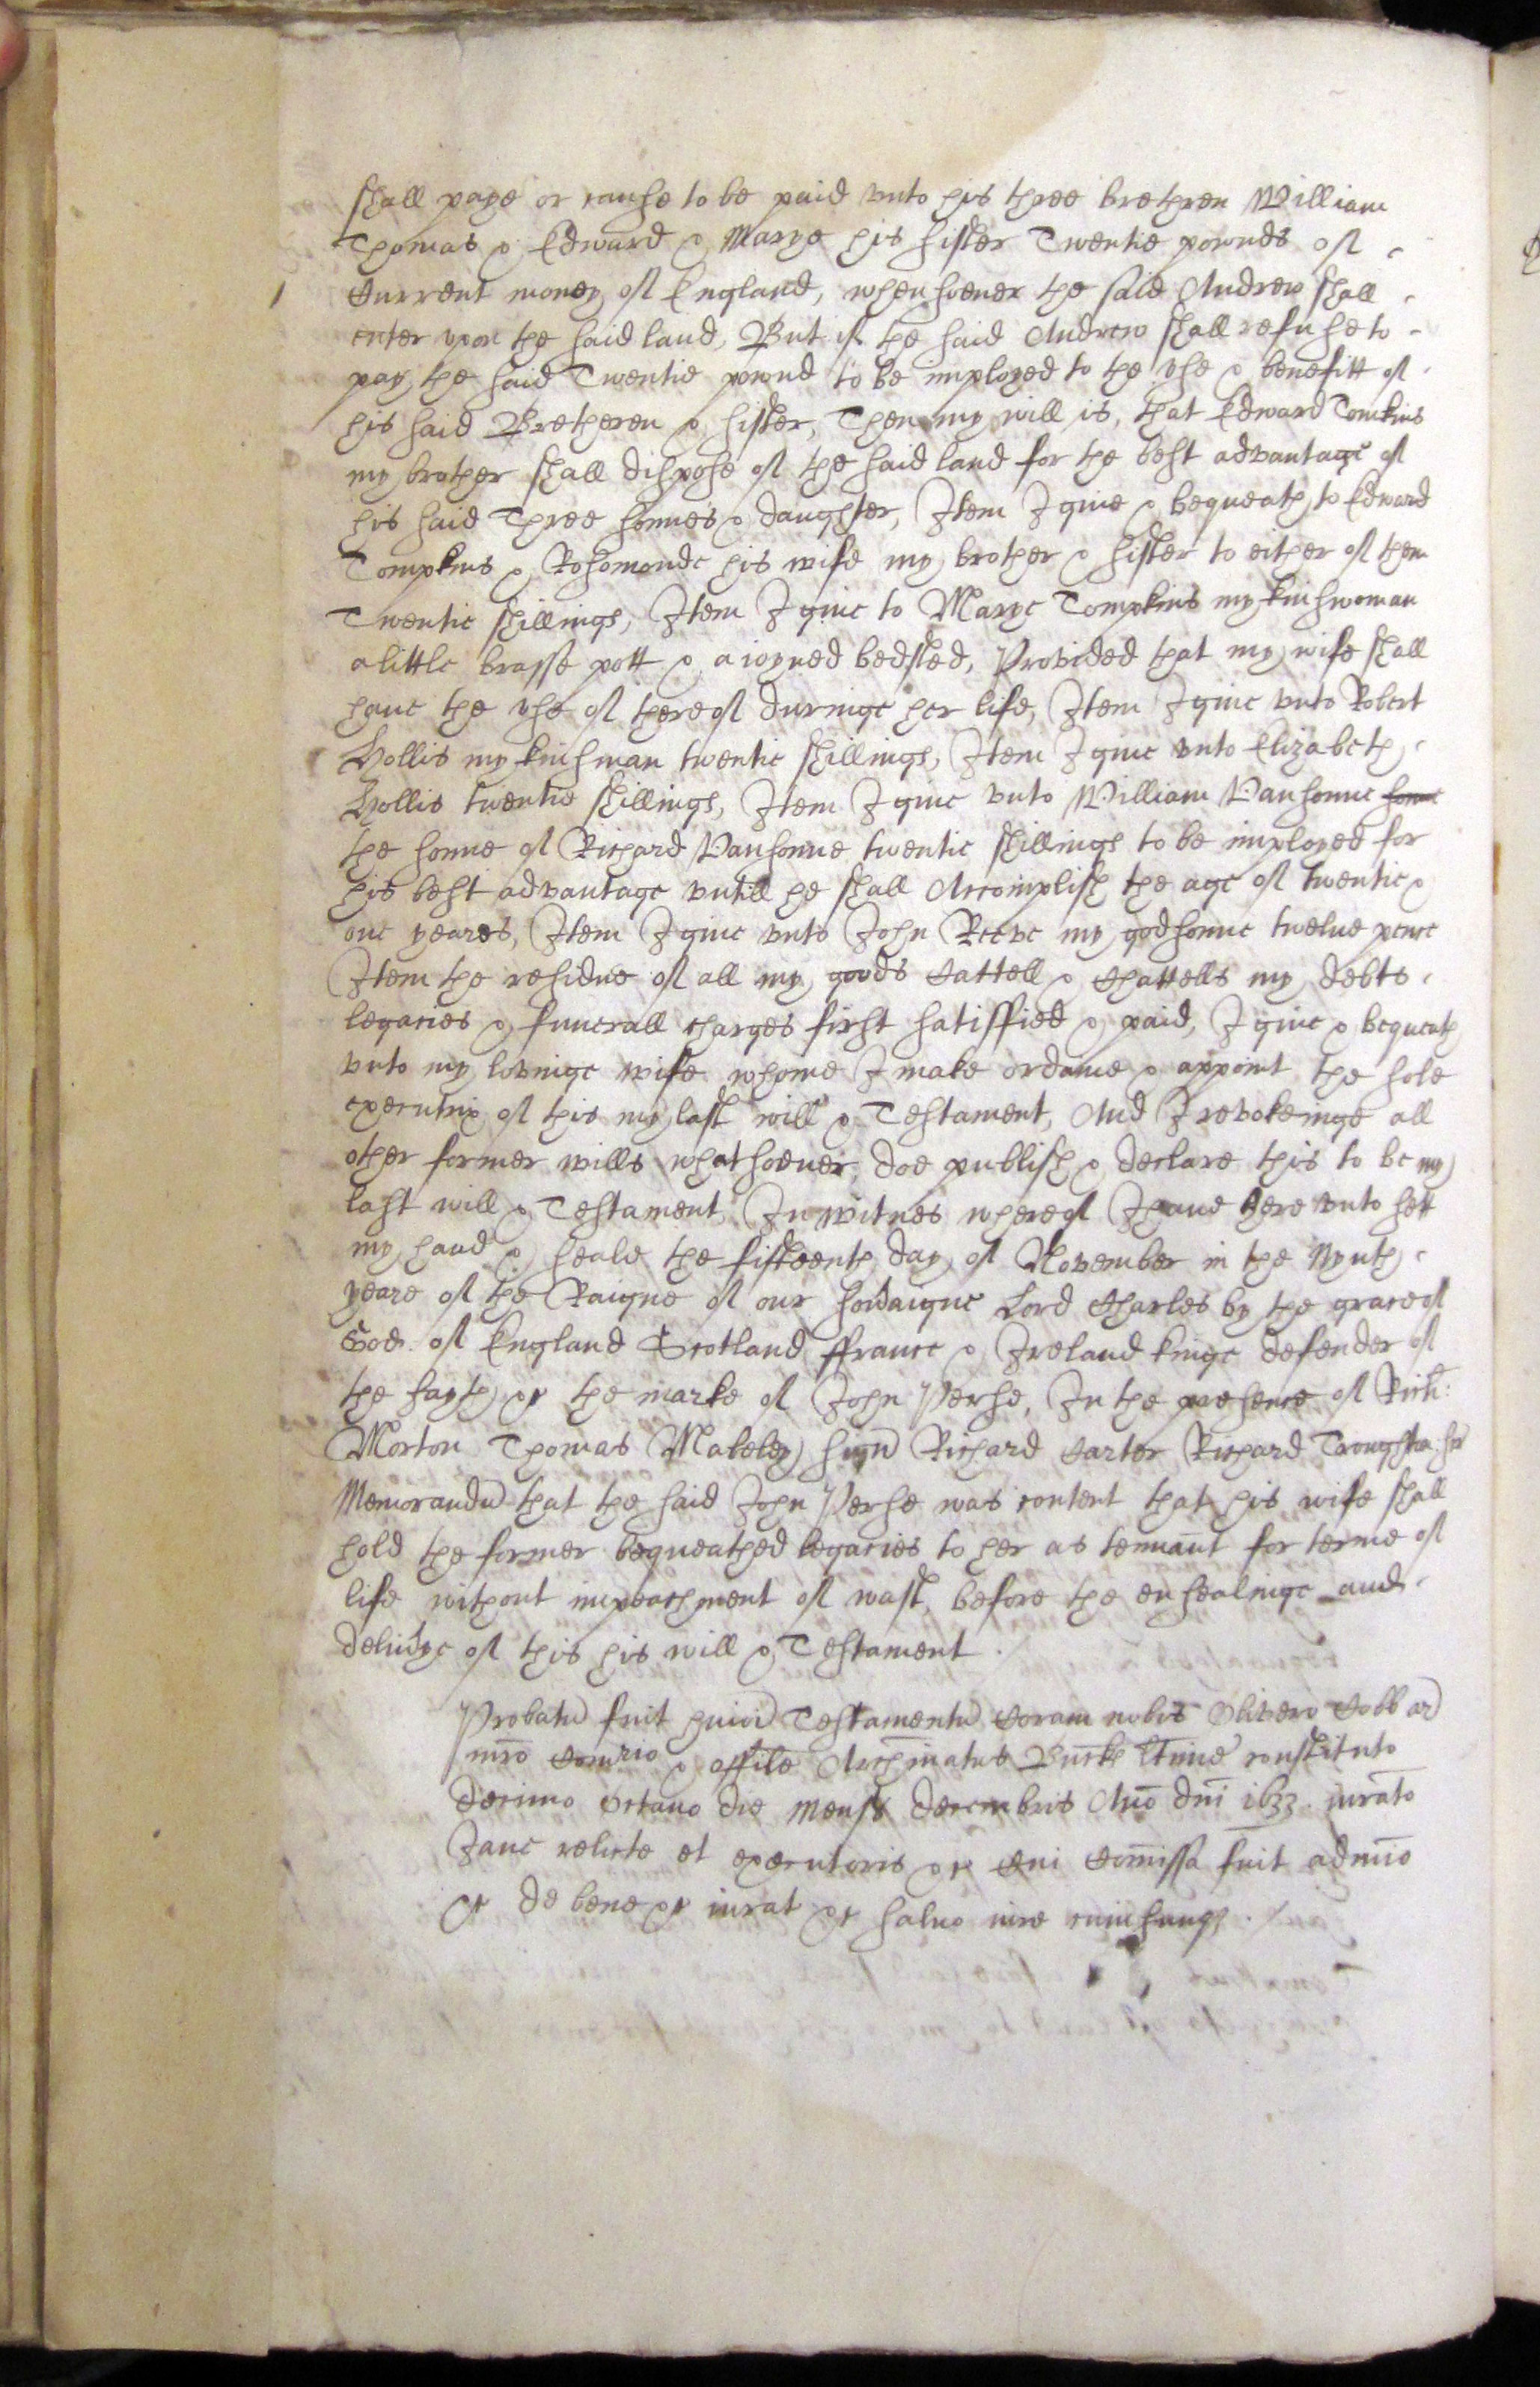 shall paye or cause to be paid vnto his three brethren William
Thomas & Edward & Marye his sister Twentie pownds of
Current money of England, whensoever the said Andrew shall
enter vpon the said land, But if the said Andrew shall refuse to
pay the said Twentie pownd to be imployed to the vse & benefitt of
his said Bretheren & sister, Then my will is, that Edward Tomkins
my brother shall dispose of the said land for the best advantage of
his said Three sonnes & daughter, Item I giue & bequeath to Edward
Tompkins & Rosomonde his wife my brother & sister to either of them
Twentie shillings, Item I giue to Marye Tompkins my kinswoman
a little brasse pott & a ioyned bedsted, Provided that my wife shall
haue the vse of thereof duringe her life, Item I giue vnto Robert
Hollis my kinsman twentie shillings, Item I giue vnto Elizabeth
Hollis twentie shillings, Item I giue vnto William Vansonne sonne
the sonne of Richard Vansonne twentie shillings to be imployed for
his best advantage vntill he shall Accomplish the age of twentie &
one yeares, Item I giue vnto John Reeve my godsonne twelue pence
Item the residue of all my goods Cattell & Chattells my debts
legacies & funerall charges first satisffied & paid, I giue & bequeath
vnto my lovinge wife whome I make ordaine & appoint the sole
executrix of this my last will & Testament, And I revokeinge all
other former wills whatsoever, doe publish & declare this to be my
last will & Testament, In witnes whereof I haue here vnto sett
my hand & seale the fifteenth day of November in the Nynth
yeare of the Raigne of our sovaigne Lord Charles by the grace of
God of England Scotland ffrance & Ireland kinge defender of
the fayth &c the marke of John Perse, In the presence of Rich:
Morton Thomas Makeley sign Richard Carter Richard
Memorandu that the said John Perse was content that his wife shall
hold the former bequeathed legacies to her as tennant for terme of
life without impeachment of wast, before the ensealinge and
delivye of this his will & Testament
Probatu fuit huiod Testamentu Coram nobis Olivero Cobb ar
mro Comrio & offile Archinatus Bucks ltime constituto
decimo octauo die mensis decembris Ano dni 1633 iurato
Jane relicte et executoris &c Cui Comissa fuit admio
&c de bene &c iurat &c saluo iure cuiuscunq